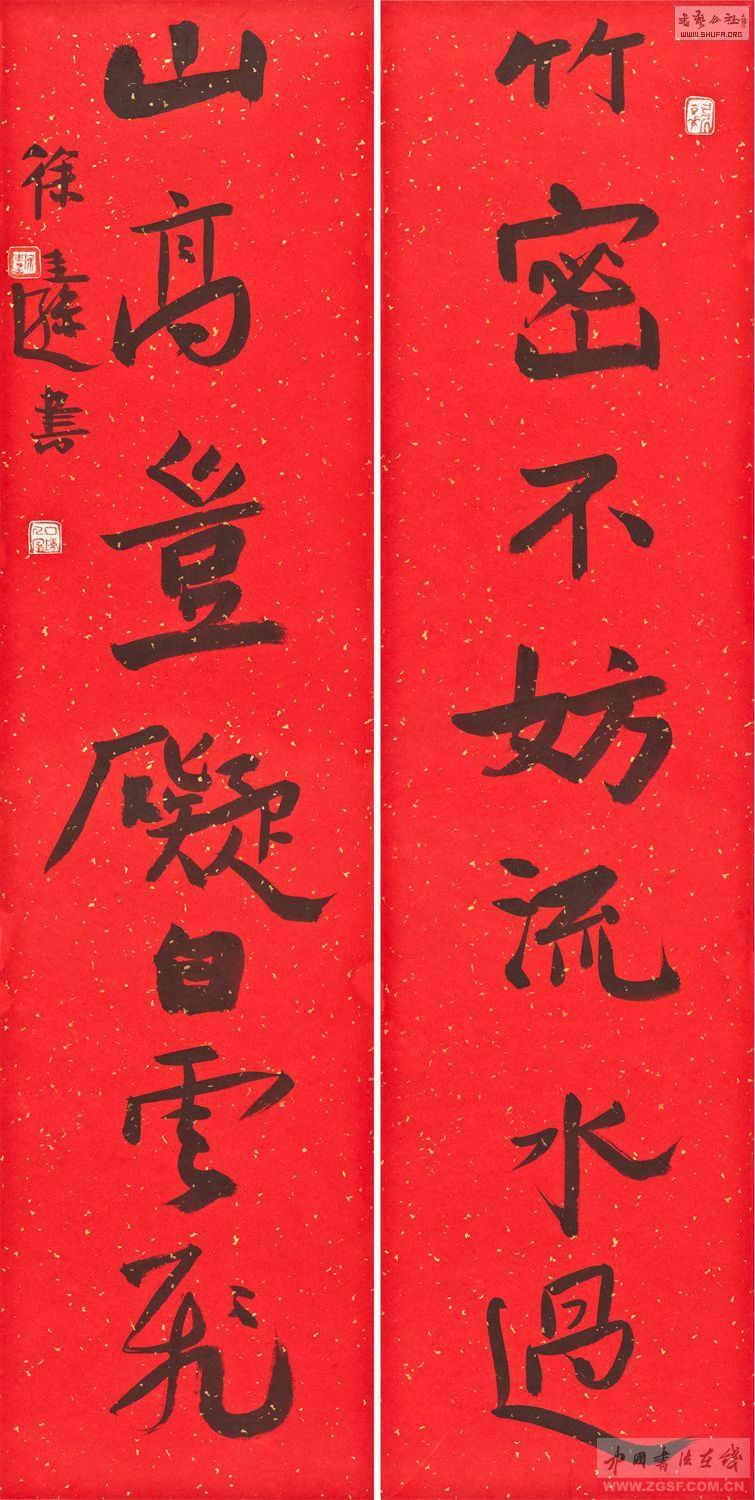 竹密不妨流水過
山高豈礙白雲飛
徐
書
書藝公社
WWW.SHUFA.ORG
中国书法在线
WWW.ZGSF.COM.CN